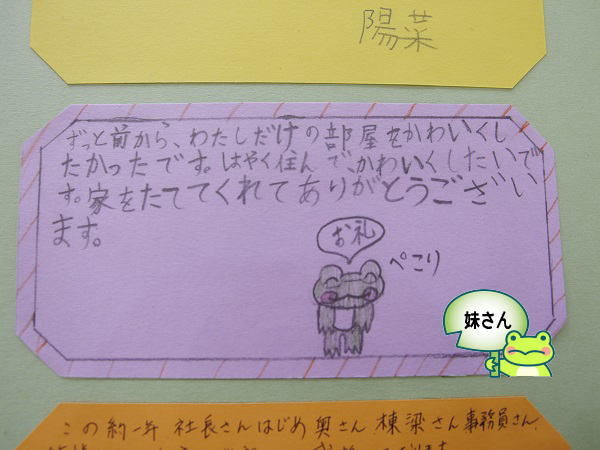 陽菜
ずっと前から、わたしだけの部屋をかわいくし
たかったです。はやく住んで、かわいくしたいで
す。家をたててくれてありがとうござい
ます。
お礼
ぺこり
妹さん
この約一年 社長さんはじめ 奥さん 棟梁さん 事務員さん